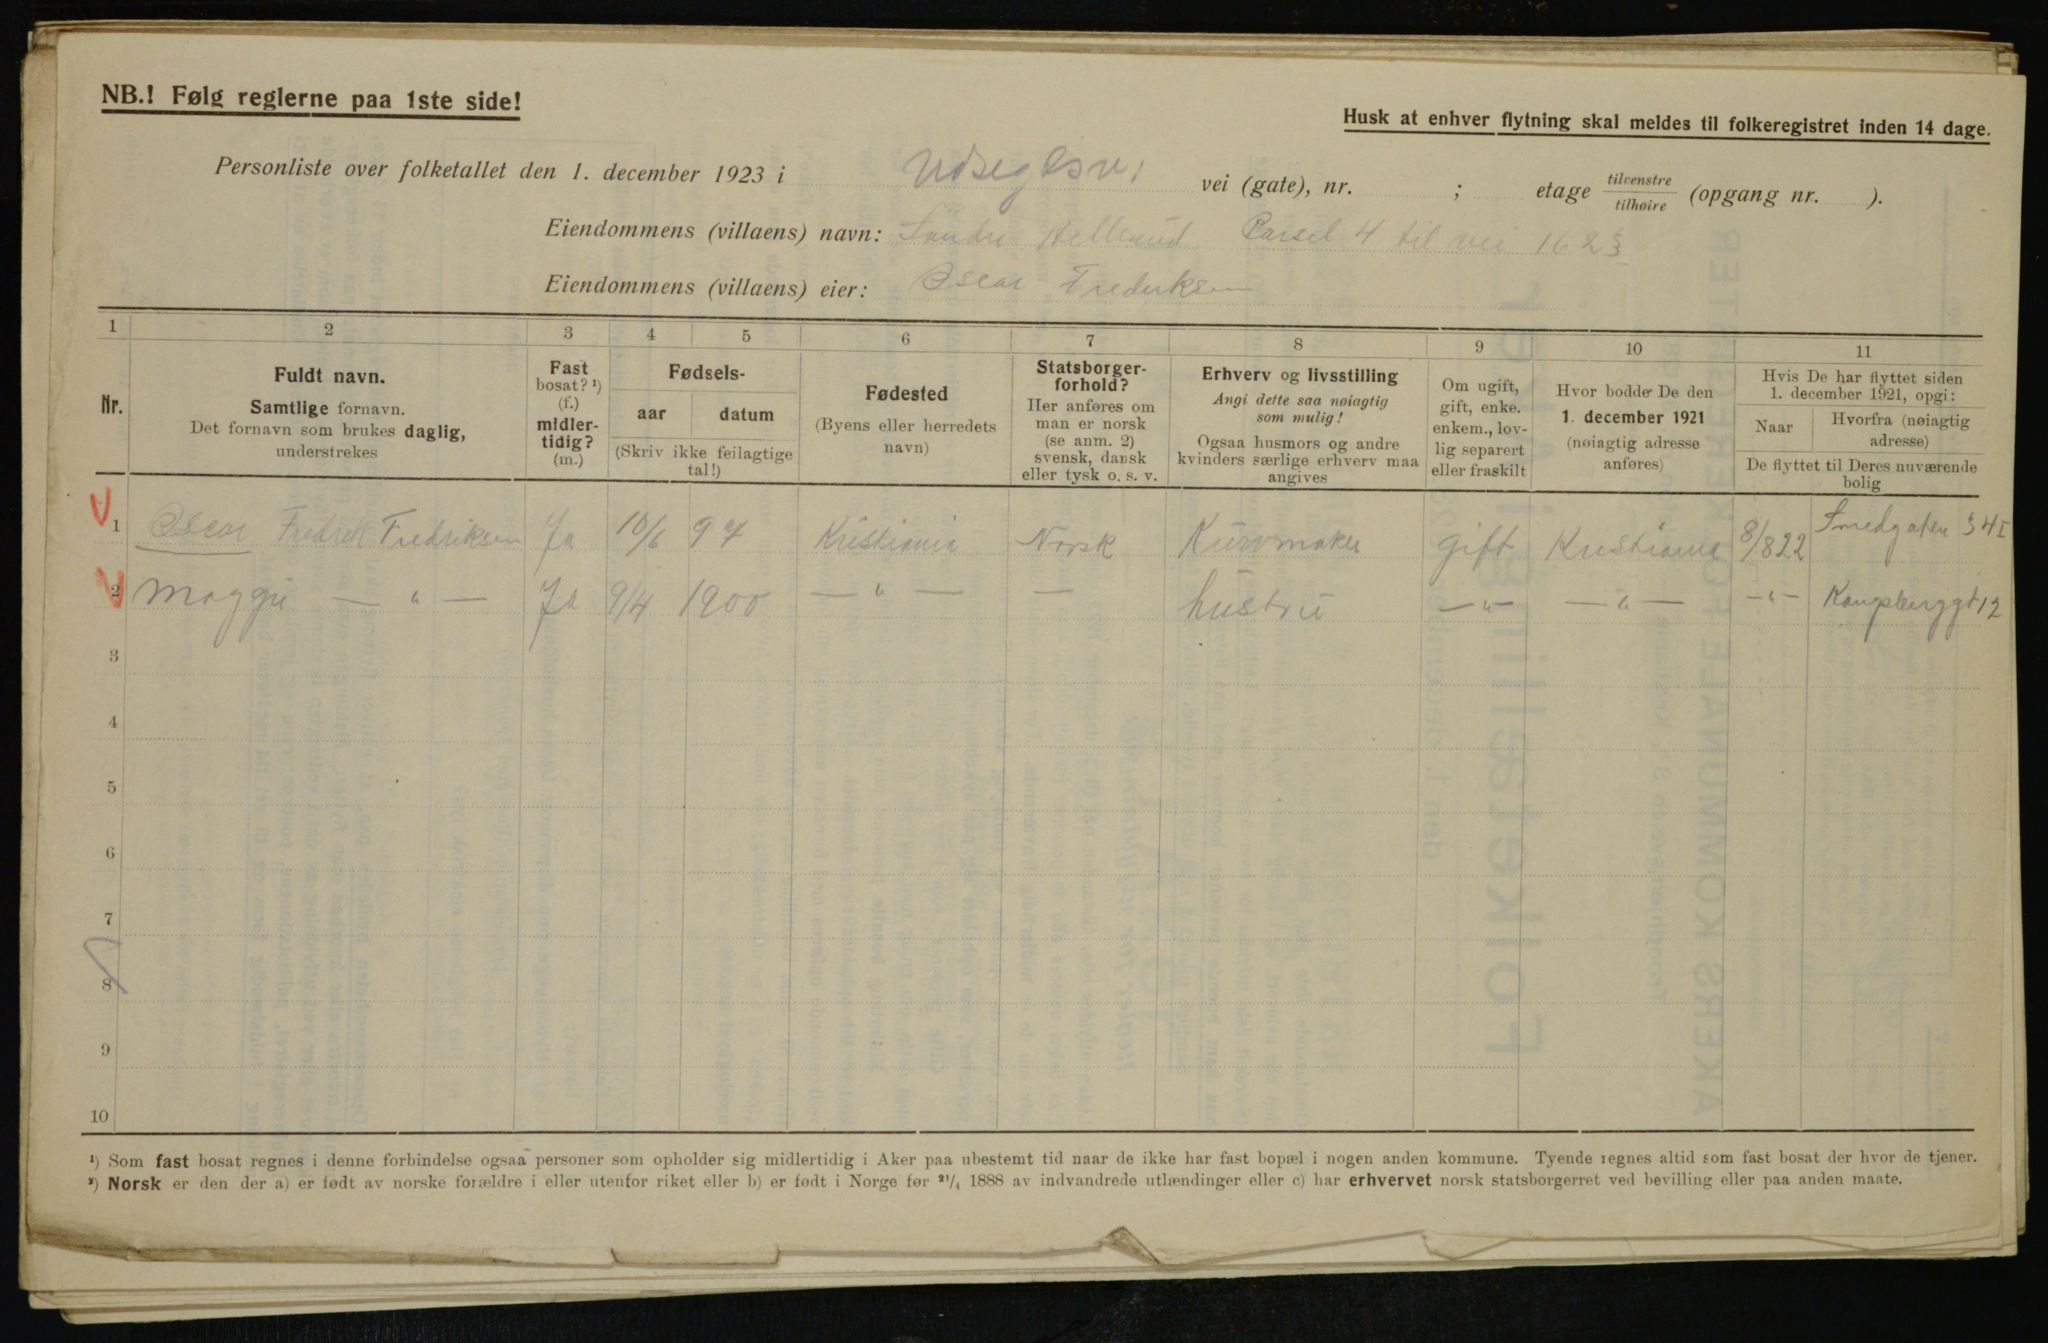 NB.! Følg reglerne paa 1ste side!
Husk at enhver flytning skal meldes til folkeregistret inden 14 dage.
Personliste over folketallet den 1. december 1923 i vei (gate), nr. ; etage tilvenstre tilhøire (opgang nr. ).
Eiendommens (villaens) navn: Søndre Parsel 4 til vei 162
Eiendommens (villaens) eier: Oscar Fredriksen
1 2 3 4 5 6 7 8 9 10 11
Nr.
Fuldt navn.
Samtlige fornavn.
Det fornavn som brukes daglig,
understrekes
Fast
bosat? ¹)
(f.)
midler-
tidig?
(m.)
Fødsels-
aar datum
(Skriv ikke feilagtige
tal!)
Fødested
(Byens eller herredets
navn)
Statsborger-
forhold?
Her anføres om
man er norsk
(se anm. 2)
svensk, dansk
eller tysk o. s. v.
Erhverv og livsstilling
Angi dette saa nøiagtig
som mulig!
Ogsaa husmors og andre
kvinders særlige erhverv maa
angives
Om ugift,
gift, enke.
enkem., lov-
lig separert
eller fraskilt
Hvor bodde De den
1. december 1921
(nøiagtig adresse
anføres)
Hvis De har flyttet siden
1. december 1921, opgi:
Naar
Hvorfra (nøiagtig
adresse)
De flyttet til Deres nuværende
bolig
1 Oscar Fredrik Fredriksen Ja 10/6 97 Kristiania Norsk Kurvmaker gift Kristiania 8/822 Smedgaten 34 I
2 Maggie — " — Ja 9/4 1900 — " — — hustru — " — — " — — " — Kongsberggt 12
3
4
5
6
7
8
9
10
¹) Som fast bosat regnes i denne forbindelse ogsaa personer som opholder sig midlertidig i Aker paa ubestemt tid naar de ikke har fast bopæl i nogen anden kommune. Tyende regnes altid som fast bosat der hvor de tjener.
²) Norsk er den der a) er født av norske forældre i eller utenfor riket eller b) er født i Norge før 21/4 1888 av indvandrede utlændinger eller c) har erhvervet norsk statsborgerret ved bevilling eller paa anden maate.